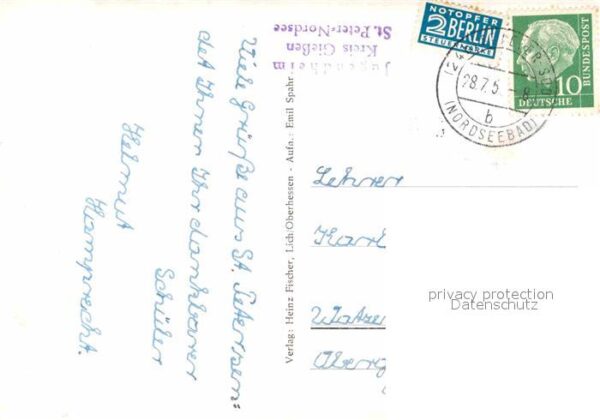 Viele Grüße aus St. Peter sen=
det Ihnen Ihr dankbarer
Schüler
Helmut
Hamprecht.
Verlag: Heinz Fischer, Lich/Oberhessen - Aufn.: Emil Spahr
Jugendheim
Kreis Gießen
St. Peter-Nordsee
NOTOPFER
2 BERLIN
STEUERMARKE
DEUTSCHE
BUNDESPOST
10
28.7.5
b
(NORDSEEBAD)
Lehrer
Karl
privacy protection
Datenschutz